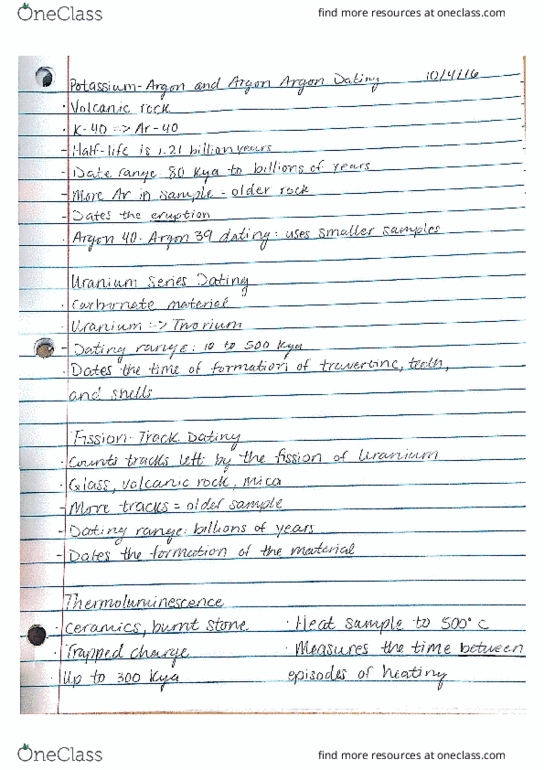 OneClass find more resources at oneclass.com
Potassium-Argon and Argon Argon Dating 10/4/16
· Volcanic rock
· K-40 => Ar-40
- Half-life is 1.21 billion years
- Date range 80 Kya to billions of years
- More Ar in sample - older rock
- Dates the eruption
· Argon 40 - Argon 39 dating: uses smaller samples
Uranium Series Dating
· Carbornate material
· Uranium => Thorium
- Dating range: 10 to 500 Kya
· Dates the time of formation of travertine, teeth,
and shells
Fission-Track Dating
· Counts tracks left by the fission of Uranium
· Glass, volcanic rock, mica
- More tracks = older sample
- Dating range: billions of years
- Dates the formation of the material
Thermoluminescence
· Ceramics, burnt stone · Heat sample to 500° C
· Trapped charge · Measures the time between
· Up to 300 Kya episodes of heating
OneClass find more resources at oneclass.com